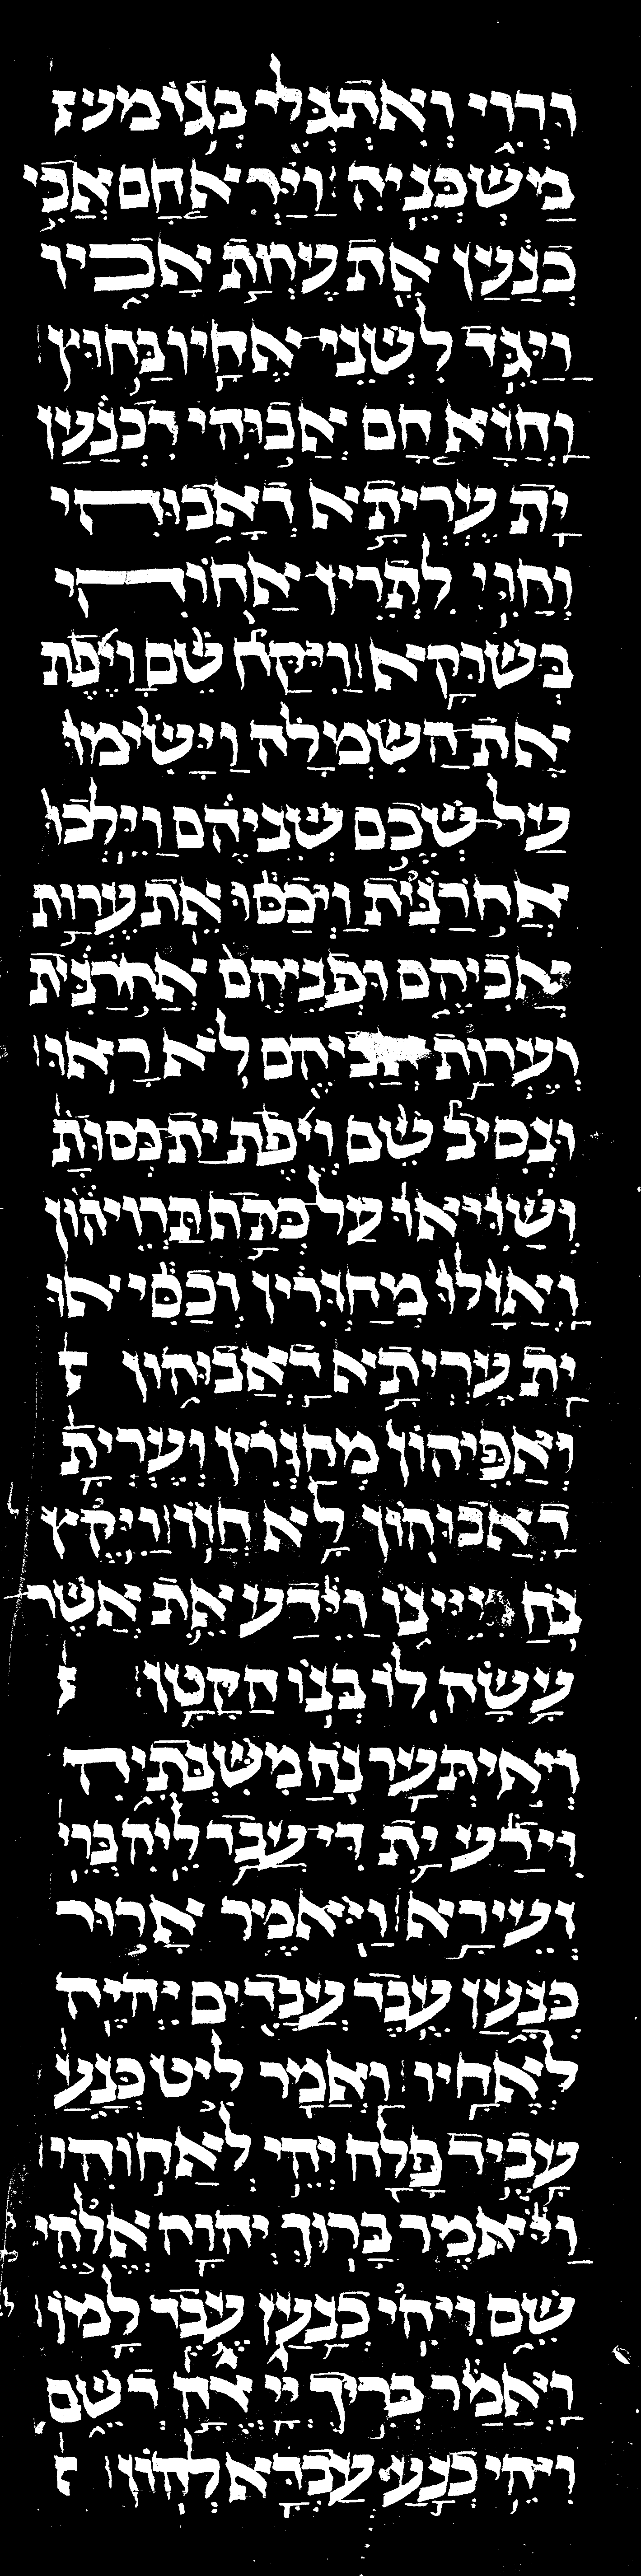 ורוי ואתגלי בגו מע
משכניה וירא חם אבי
כנען את ערות אביו
ויגד לשני אחיו בחוץ
וחזא חם אבוהי דכנען
ית עריתא דאבוהי
וחוי לתרין אחוהי
בשוקא ויקח שם ויפת
את השמלה וישימו
על שכם שניהם וילכו
אחרנית ויכסו את ערות
אביהם ופניהם אחרנית
וערות אביהם לא ראו
ונסיב שם ויפת ית כסות
ושויאו על כתף תרויהון
ואזלו מחזרין וכסיאו
ית עריתא דאבוהון
ואפיהון מחזרין וערית
דאבוהון לא חזו וייקץ
נח מיינו וידע את אשר
עשה לו בנו הקטן
ואיתער נח משנתיה
וידע ית די עבד ליה בריה
זעירא ויאמר ארור
כנען עבד עבדים יהיה
לאחיו ואמר ליט כנע
עביד פלח יהי לאחוהי
ויאמר ברוך יהוה אלהי
שם ויהי כנען עבד למו
ואמר בריך ייי אלה דשם
ויהי כנען עבדא להון